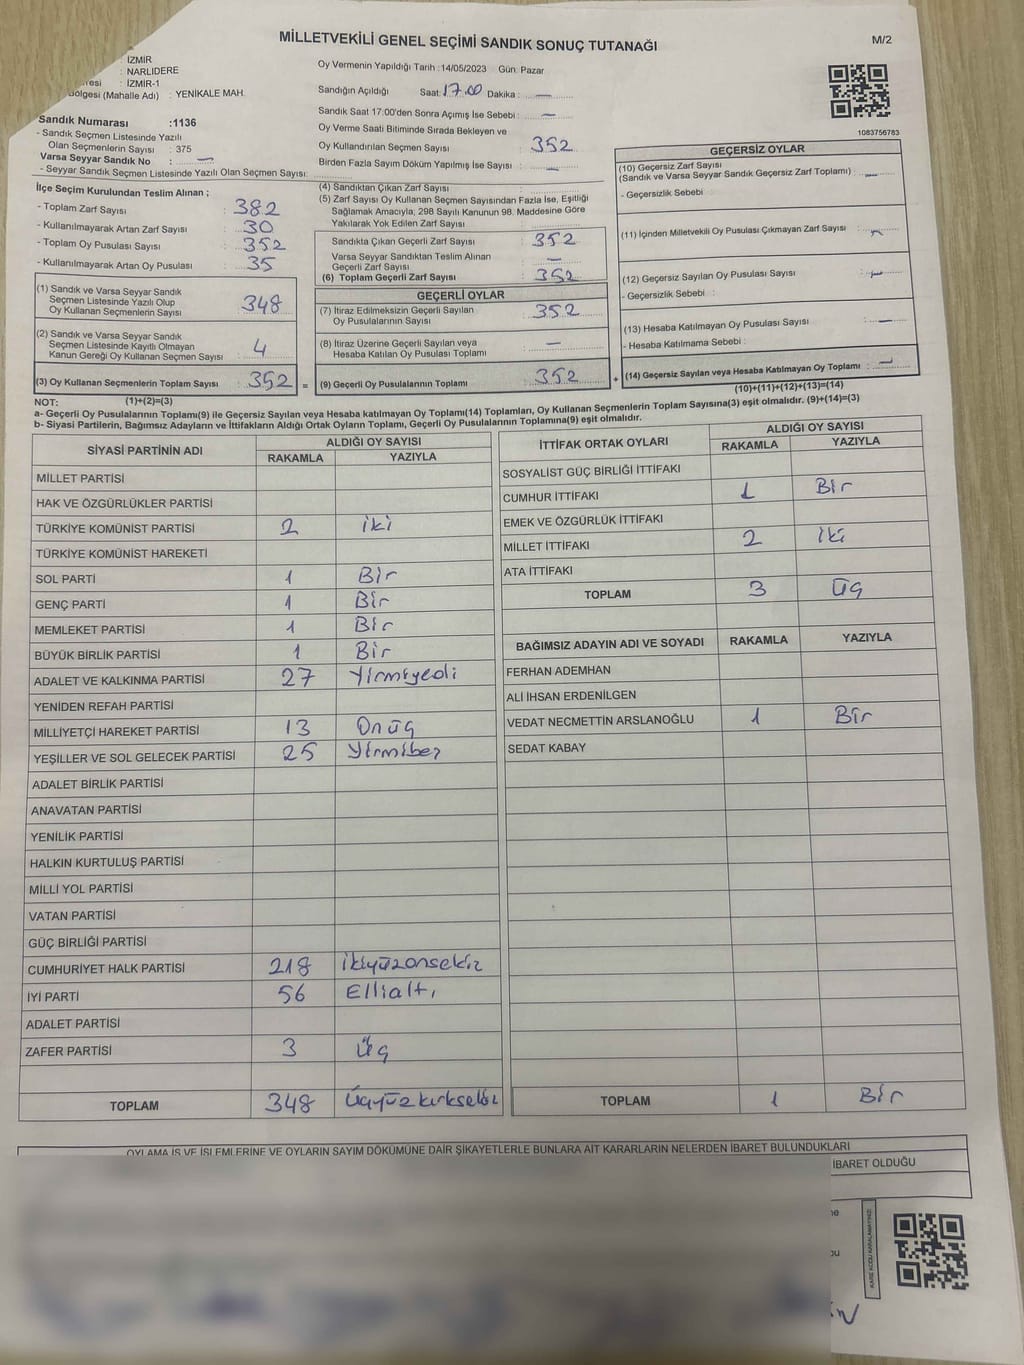 MİLLETVEKİLİ GENEL SEÇİMİ SANDIK SONUÇ TUTANAĞI
M/2
İZMİR
NARLIDERE
: İZMİR-1
Bölgesi (Mahalle Adı) : YENİKALE MAH.
Sandık Numarası :1136
- Sandık Seçmen Listesinde Yazılı
Olan Seçmenlerin Sayısı : 375
Varsa Seyyar Sandık No : —
- Seyyar Sandık Seçmen Listesinde Yazılı Olan Seçmen Sayısı:
Oy Vermenin Yapıldığı Tarih :14/05/2023 Gün: Pazar
Sandığın Açıldığı Saat: 17.00 Dakika : —
Sandık Saat 17:00'den Sonra Açımış İse Sebebi : —
Oy Verme Saati Bitiminde Sırada Bekleyen ve
Oy Kullandırılan Seçmen Sayısı : 352
Birden Fazla Sayım Döküm Yapılmış İse Sayısı : —
1083756783
İlçe Seçim Kurulundan Teslim Alınan ;
- Toplam Zarf Sayısı : 382
- Kullanılmayarak Artan Zarf Sayısı : 30
- Toplam Oy Pusulası Sayısı : 352
- Kullanılmayarak Artan Oy Pusulası : 35
(1) Sandık ve Varsa Seyyar Sandık
Seçmen Listesinde Yazılı Olup
Oy Kullanan Seçmenlerin Sayısı : 348
(2) Sandık ve Varsa Seyyar Sandık
Seçmen Listesinde Kayıtlı Olmayan
Kanun Gereği Oy Kullanan Seçmen Sayısı : 4
(3) Oy Kullanan Seçmenlerin Toplam Sayısı : 352 =
(1)+(2)=(3)
(4) Sandıktan Çıkan Zarf Sayısı :
(5) Zarf Sayısı Oy Kullanan Seçmen Sayısından Fazla İse, Eşitliği
Sağlamak Amacıyla, 298 Sayılı Kanunun 98. Maddesine Göre
Yakılarak Yok Edilen Zarf Sayısı :
Sandıkta Çıkan Geçerli Zarf Sayısı : 352
Varsa Seyyar Sandıktan Teslim Alınan
Geçerli Zarf Sayısı : —
(6) Toplam Geçerli Zarf Sayısı : 352
GEÇERLİ OYLAR
(7) İtiraz Edilmeksizin Geçerli Sayılan
Oy Pusulalarının Sayısı : 352
(8) İtiraz Üzerine Geçerli Sayılan veya
Hesaba Katılan Oy Pusulası Toplamı : —
(9) Geçerli Oy Pusulalarının Toplamı : 352 +
GEÇERSİZ OYLAR
(10) Geçersiz Zarf Sayısı
(Sandık ve Varsa Seyyar Sandık Geçersiz Zarf Toplamı) : —
- Geçersizlik Sebebi :
(11) İçinden Milletvekili Oy Pusulası Çıkmayan Zarf Sayısı : —
(12) Geçersiz Sayılan Oy Pusulası Sayısı : —
- Geçersizlik Sebebi :
(13) Hesaba Katılmayan Oy Pusulası Sayısı : —
- Hesaba Katılmama Sebebi :
(14) Geçersiz Sayılan veya Hesaba Katılmayan Oy Toplamı : —
(10)+(11)+(12)+(13)=(14)
NOT:
a- Geçerli Oy Pusulalarının Toplamı(9) ile Geçersiz Sayılan veya Hesaba katılmayan Oy Toplamı(14) Toplamları, Oy Kullanan Seçmenlerin Toplam Sayısına(3) eşit olmalıdır. (9)+(14)=(3)
b- Siyasi Partilerin, Bağımsız Adayların ve İttifakların Aldığı Ortak Oyların Toplamı, Geçerli Oy Pusulalarının Toplamına(9) eşit olmalıdır.
SİYASİ PARTİNİN ADI ALDIĞI OY SAYISI
RAKAMLA YAZIYLA
MİLLET PARTİSİ
HAK VE ÖZGÜRLÜKLER PARTİSİ
TÜRKİYE KOMÜNİST PARTİSİ 2 iki
TÜRKİYE KOMÜNİST HAREKETİ
SOL PARTİ 1 Bir
GENÇ PARTİ 1 Bir
MEMLEKET PARTİSİ 1 Bir
BÜYÜK BİRLİK PARTİSİ 1 Bir
ADALET VE KALKINMA PARTİSİ 27 Yirmiyedi
YENİDEN REFAH PARTİSİ
MİLLİYETÇİ HAREKET PARTİSİ 13 Onüç
YEŞİLLER VE SOL GELECEK PARTİSİ 25 Yirmibeş
ADALET BİRLİK PARTİSİ
ANAVATAN PARTİSİ
YENİLİK PARTİSİ
HALKIN KURTULUŞ PARTİSİ
MİLLİ YOL PARTİSİ
VATAN PARTİSİ
GÜÇ BİRLİĞİ PARTİSİ
CUMHURİYET HALK PARTİSİ 218 ikiyüzonsekiz
İYİ PARTİ 56 Ellialtı
ADALET PARTİSİ
ZAFER PARTİSİ 3 Üç
TOPLAM 348 Üçyüzkırksekiz
İTTİFAK ORTAK OYLARI ALDIĞI OY SAYISI
RAKAMLA YAZIYLA
SOSYALİST GÜÇ BİRLİĞİ İTTİFAKI
CUMHUR İTTİFAKI 1 Bir
EMEK VE ÖZGÜRLÜK İTTİFAKI
MİLLET İTTİFAKI 2 iki
ATA İTTİFAKI
TOPLAM 3 Üç
BAĞIMSIZ ADAYIN ADI VE SOYADI RAKAMLA YAZIYLA
FERHAN ADEMHAN
ALİ İHSAN ERDENİLGEN
VEDAT NECMETTİN ARSLANOĞLU 1 Bir
SEDAT KABAY
TOPLAM 1 Bir
OYLAMA İŞ VE İŞLEMLERİNE VE OYLARIN SAYIM DÖKÜMÜNE DAİR ŞİKAYETLERLE BUNLARA AİT KARARLARIN NELERDEN İBARET BULUNDUKLARI
İBARET OLDUĞU